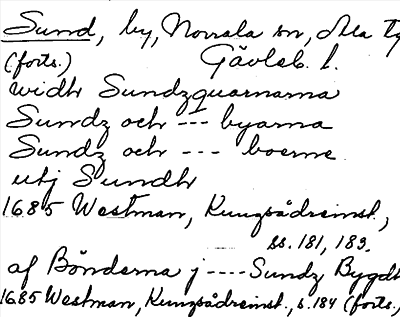 Sund, by, Norrala sn,
(forts.) Gävleb. l.
widh Sundzquarnarna
Sundz och --- byarna
Sundz och --- boerne
utj Sundh
1685 Westman, Kungsådreinst.,
ss. 181, 183.
af Bönderna j ---- Sundz Bygdh
1685 Westman, Kungsådreinst., s. 184 (forts.)